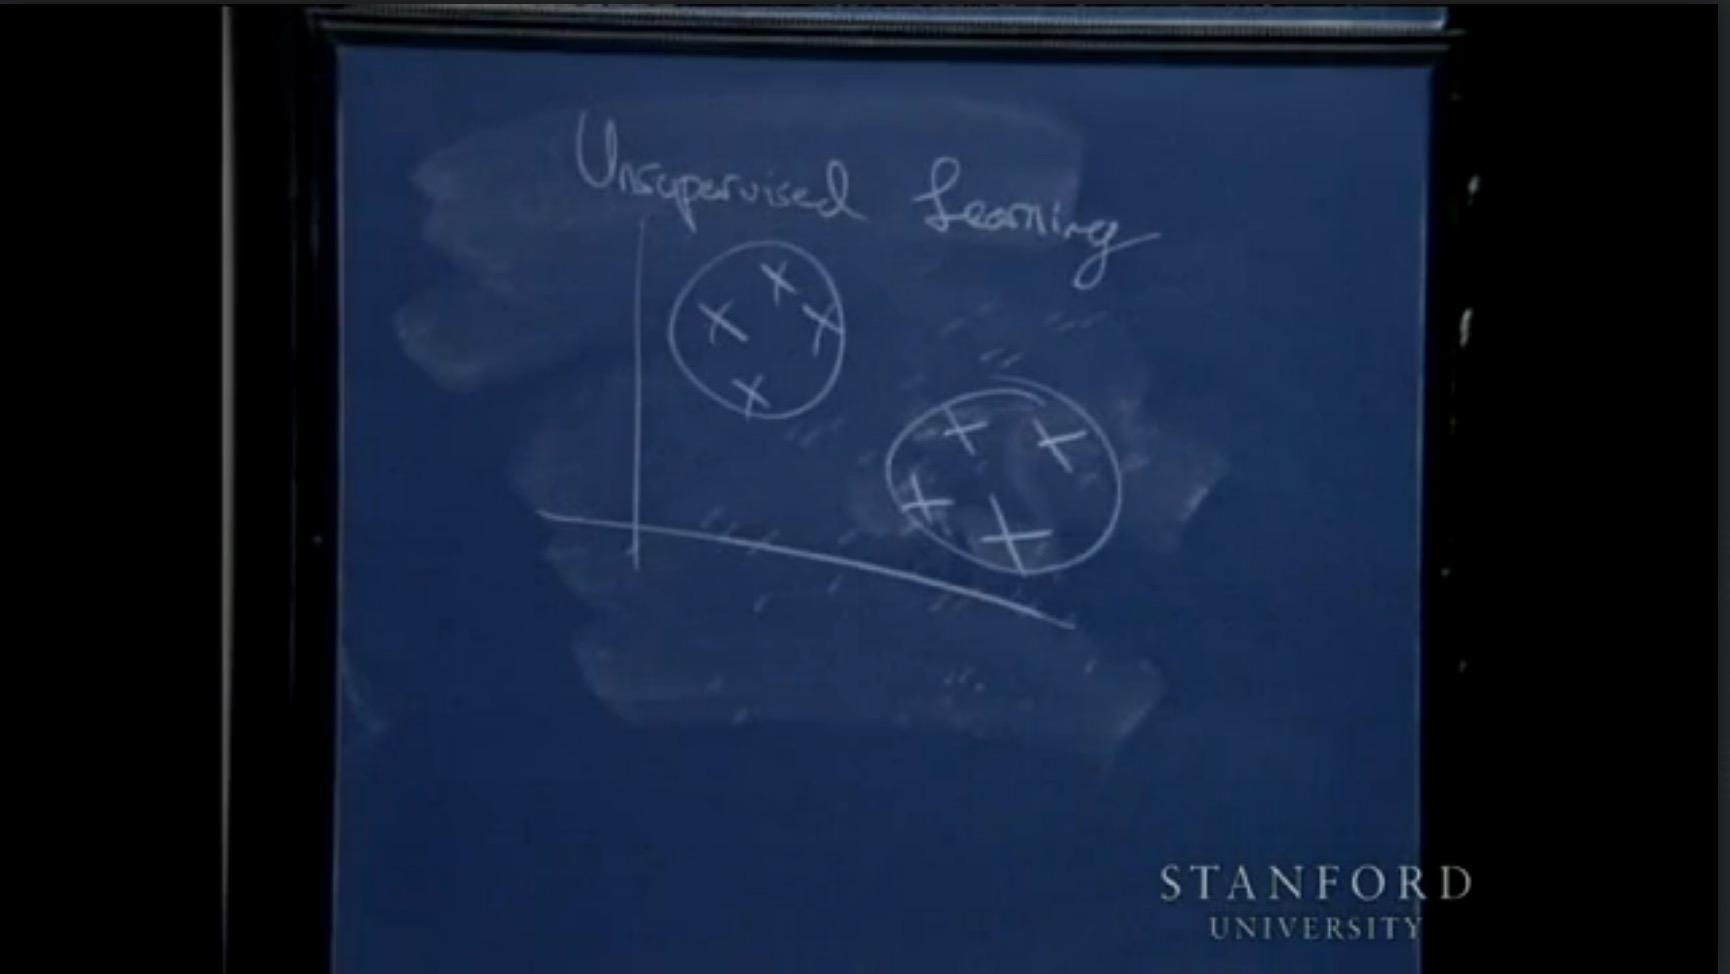 Unsupervised Learning
STANFORD
UNIVERSITY